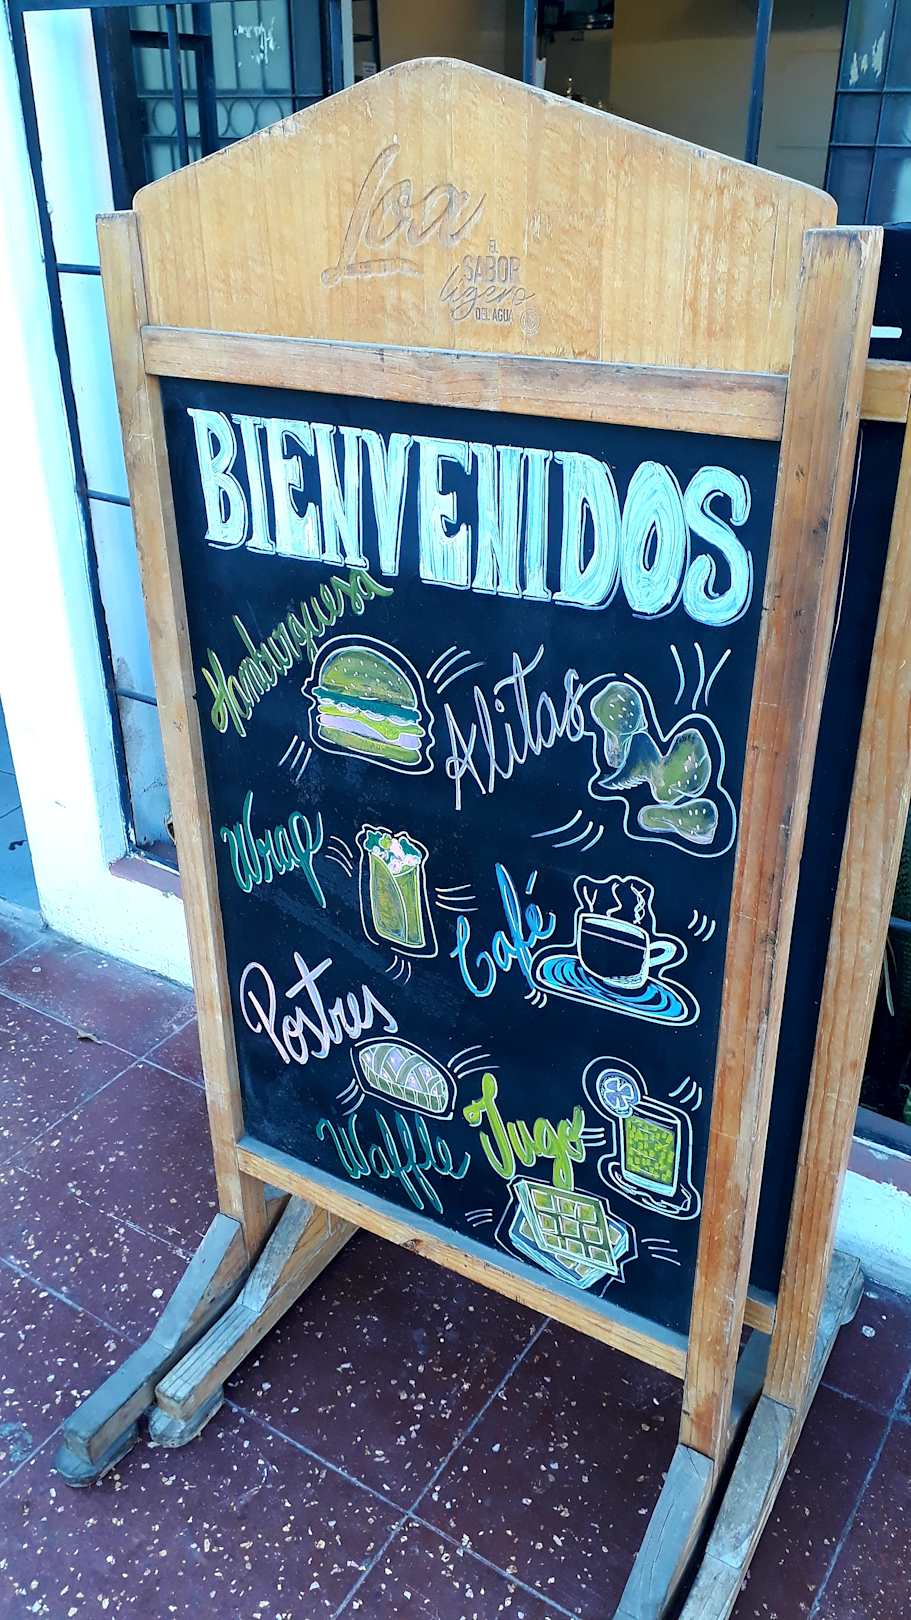 Loa
EL
SABOR
ligero
DEL AGUA
BIENVENIDOS
Hamburguesa
Alitas
Wrap
Café
Postres
Jugo
Waffle